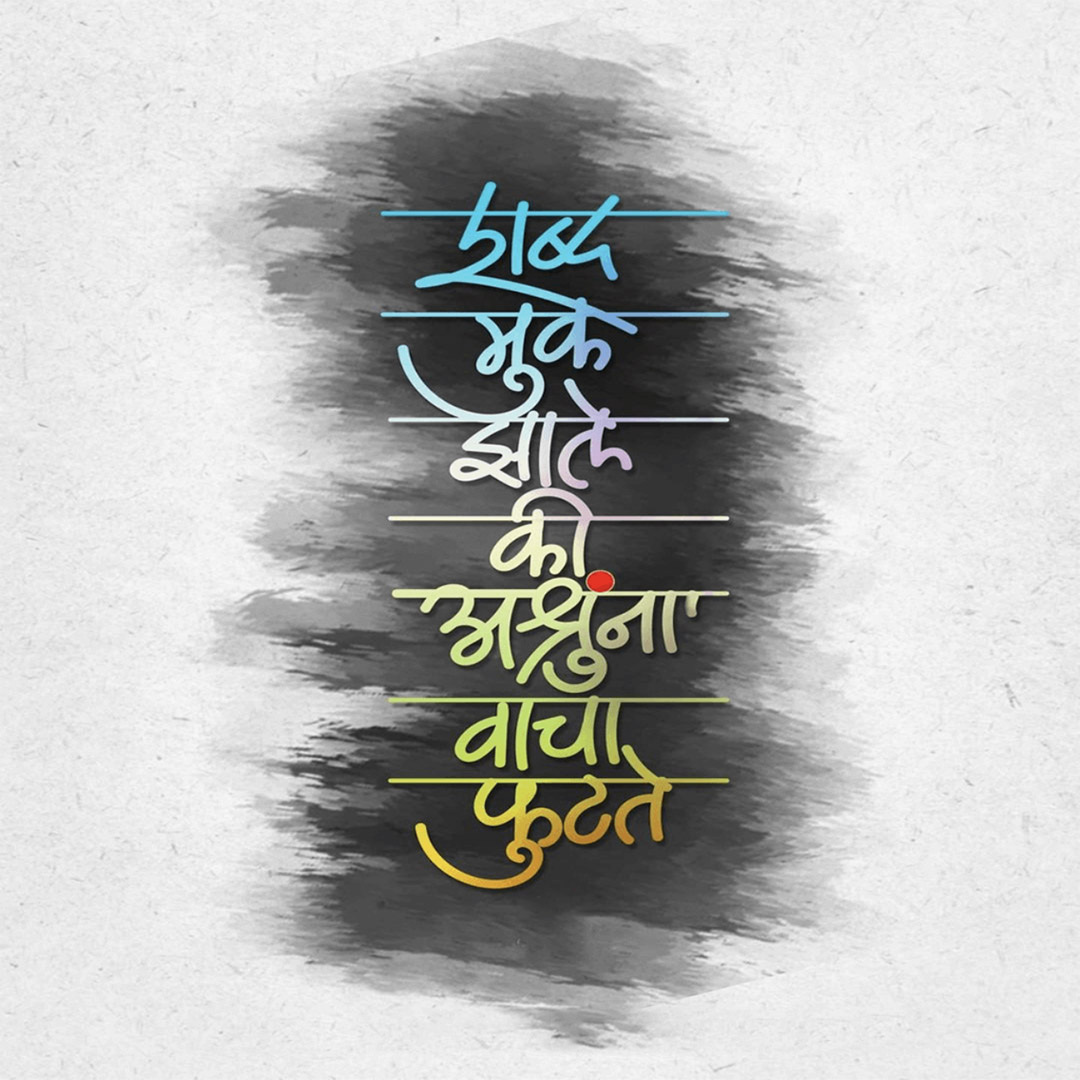 शब्द
मुक
झाले
की
अश्रुंना
वाचा
फुटते